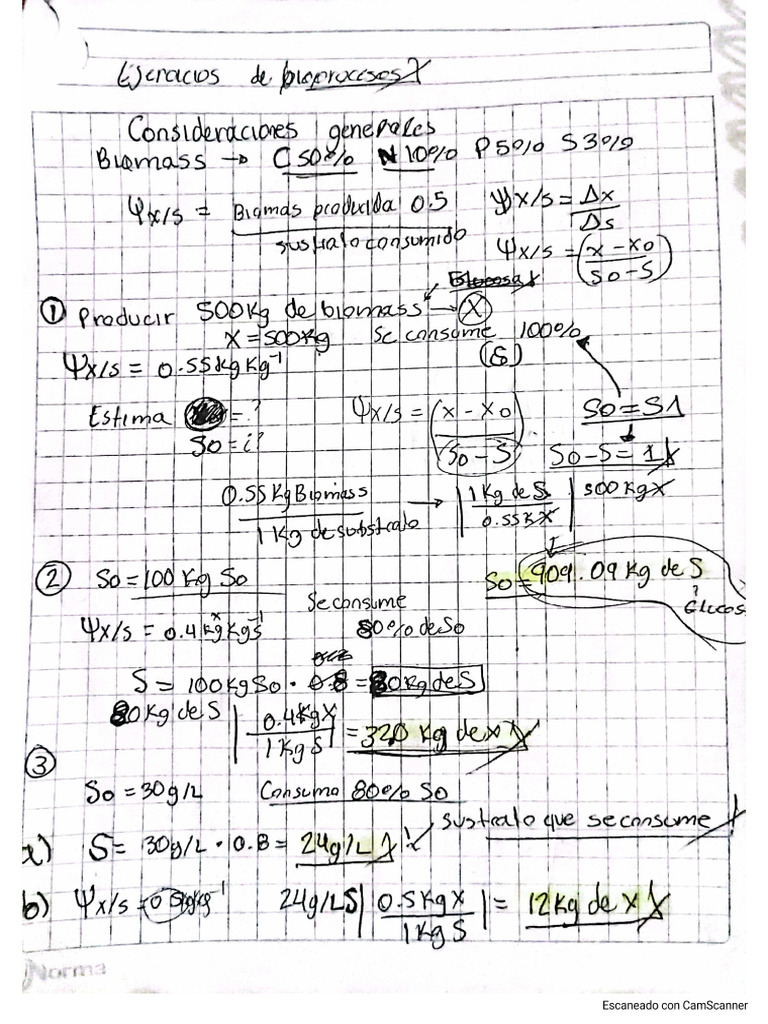 Ejercicios de bioprocesos
Consideraciones generales
Biomass → C 50% N 10% P 5% S 3%
Ψx/s = Biomas producida 0.5 / sustrato consumido
Ψx/s = Δx / Δs
Ψx/s = (x - xo / so - S)
① Producir 500kg de biomass → X
X = 500kg Se consume 100%
(S)
Ψx/s = 0.55 kg kg⁻¹
Estima = ?
So = ¿?
Ψx/s = (x - xo / So - S)
So = S1
So - S = 1
0.55 Kg Biomass / 1 Kg de substrato → | 1 Kg de S / 0.55 K X | 500 Kg X
So = 909.09 Kg de S
Glucos
② So = 100 Kg So
Se consume
80% de So
Ψx/s = 0.4 kgx kgs⁻¹
S = 100 Kg So · 0.8 = 80 Kg de S
80 Kg de S | 0.4 Kg X / 1 Kg S | = 320 Kg de x
③
So = 30 g/L Consuma 80% So
a) S = 30 g/L · 0.8 = 24 g/L
sustrato que se consume
b) Ψx/s = 0.5 kg kg⁻¹ 24 g/L S | 0.5 Kg X / 1 Kg S | = 12 Kg de x
Norma
Escaneado con CamScanner